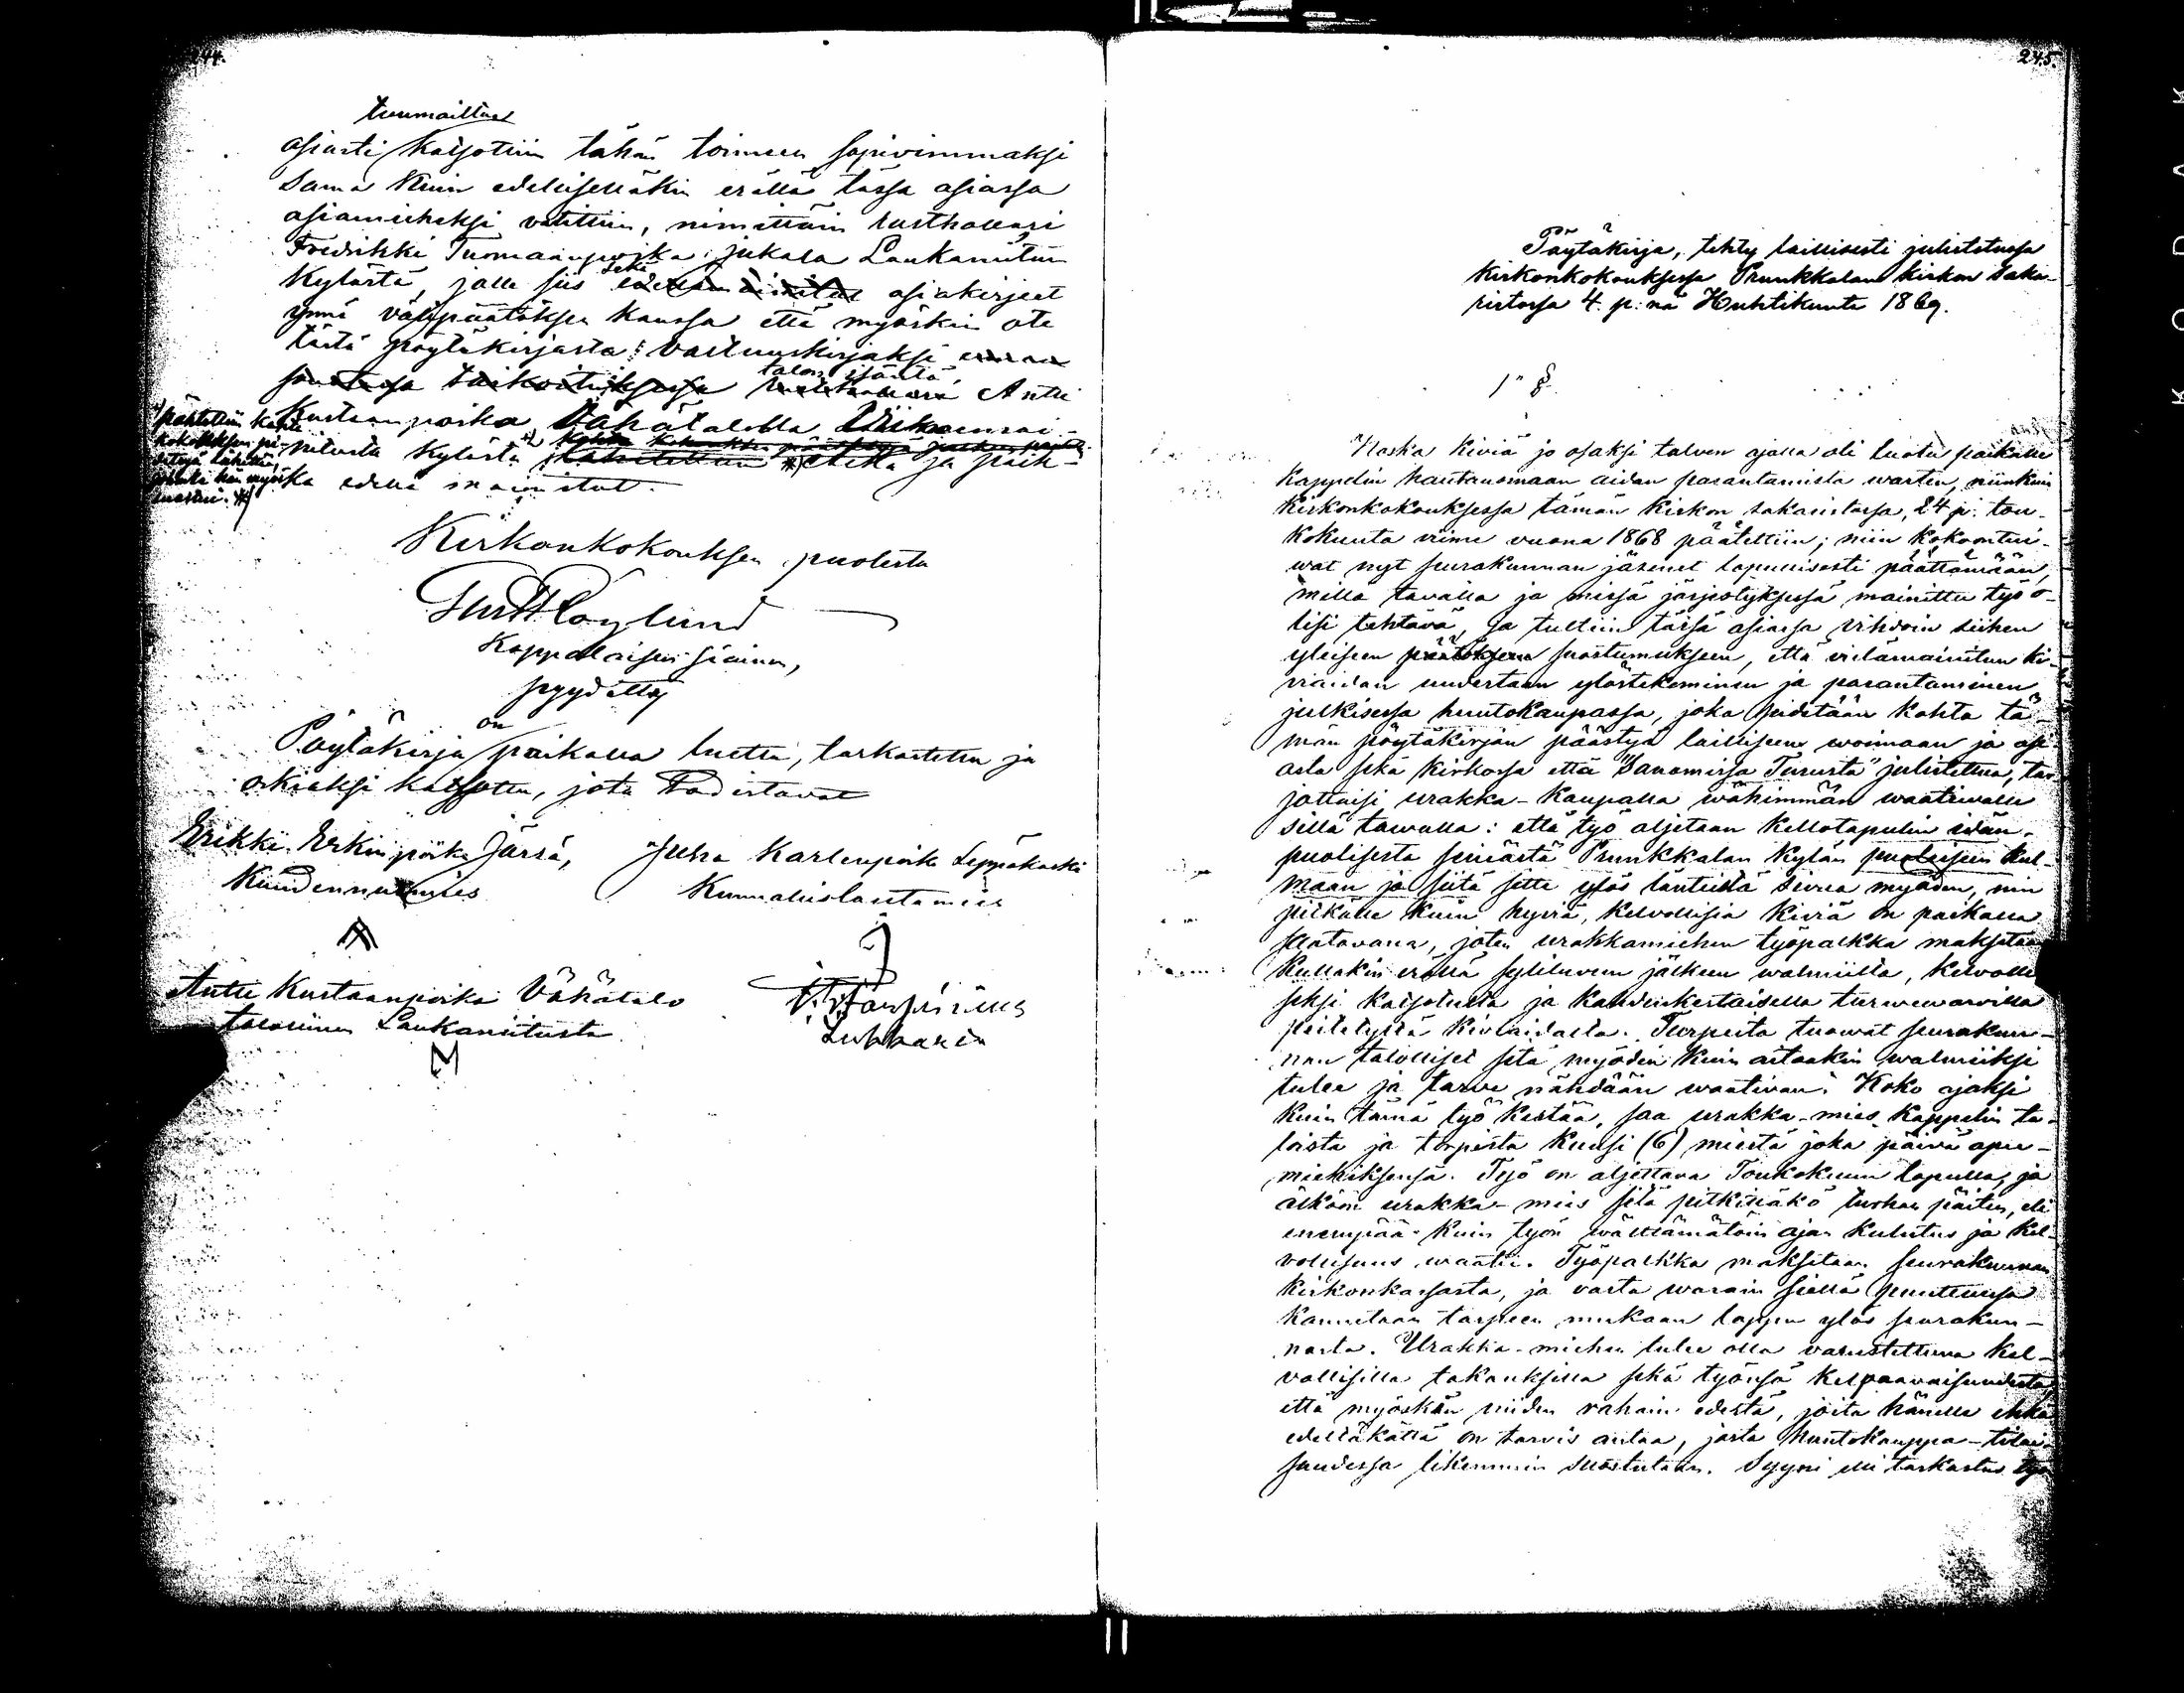 244.
tuumaittua
asiasti katsottiin tähän toimeen sopivimmaksi
sama kuin edellisessäkin erällä tässa asiassa
asiamieheksi valittiin, nimittäin rusthollari
Fredrikki Tuomaanpoika Jukala Laukaniitun
kylästä, jolle siis sekä asiakirjeet
ynnä välipäätöksen kanssa että myöskin ote
tästä pöytäkirjasta valtuuskirjaksi
talon isäntä Antti
Kustaanpoika Vähätalolla
nitusta kylästä
päätettiin
kokouksen
ka edellä mainitut.
Kirkonkokouksen puolesta
Kappalaisen siainen,
pyydetty
on
Pöytäkirja paikalla luettu, tarkastettu ja
oikiaksi katsottu, jota todistavat
Erikki Erkinpoika Järsä, Juha Karlenpoika Leppäkoski
Kuudennusmies Kunnallislautamies
Antti Kustaanpoika Vähätalo
talollinen Laukaniitusta
Lukkari
245.
Pöytäkirja, tehty laillisesti julistetussa
kirkonkokouksessa Prunkkalan kirkon saka-
ristossa 4. p:nä Huhtikuuta 1869.
1" §
Koska kiviä jo osaksi talven ajalla oli luotu paikalle
kappelin hautausmaan aidan parantamista warten, niinkuin
kirkonkokouksessa tämän kirkon sakaristossa, 24 p. tou-
kokuuta viime vuona 1868 päätettiin; niin kokoontui-
wat nyt seurakunnan jäsenet lopullisesti päättämään,
millä tavalla ja missä järjestyksessä mainittu työ o-
lisi tehtävä, ja tultiin tässä asiassa vihdoin siihen
yleiseen päätökseen suostumukseen, että vielämainitun ki-
viaidan uudestaan ylöstekeminen ja parantaminen
julkisessa huutokaupassa, joka pidetään kohta tä-
män pöytäkirjan päästyä lailliseen woimaan ja
asta sekä kirkossa että "Sanomissa Turusta" julistettua, tar-
jottaisi urakka-kaupalla wähimmän waatiwalle
sillä tawalla: että työ aljetaan kellotapulin idän-
puolisesta seinästä Prunkkalan kylän puoleiseen kul-
maan ja siitä sitte ylös länteistä sivua myöden, niin
pitkälle kuin hyviä, kelvollisia kiviä on paikalla
saatavana, joten urakkamiehen työpalkka maksetaan
kullakin erällä syliluvun jälkeen walmiilla, kelvolli
seksi katsotusta ja kahdenkertaisella turwewarvilla
peitetyllä kiviaidalla. Turpeita tuowat seurakun-
nan talolliset sitä myöden kuin aitaakin walmiiksi
tulee ja tarwe nähdään waativan. Koko ajaksi
kuin tämä työ kestää, saa urakka-mies kappelin ta-
loista ja torpista kuusi (6) miestä joka päivä apu-
miehiksensä. Työ on aljettava Toukokuun lopulla, ja
älköön urakka-mies sitä pitkittäkö turhan päiten, eli
enempää kuin työn wälttämätöin ajan kulutus ja kel-
vollisuus waatii. Työpalkka maksetaan seurakunnan
kirkonkassasta, ja vasta warain siellä puuttuessa
kannetaan tarpeen mukaan loppu ylös seurakun-
nasta. Urakka-miehen tulee olla varustettuna kel-
vollisilla takauksilla sekä työnsä kelpaavaisuudesta,
että myöskin niiden rahain edestä, joita hänelle ehkä
edelläkättä on tarvis antaa, josta huutokauppa-tilai-
suudessa likemmin suostutaan. Syyni eli tarkastus työ
KODAK